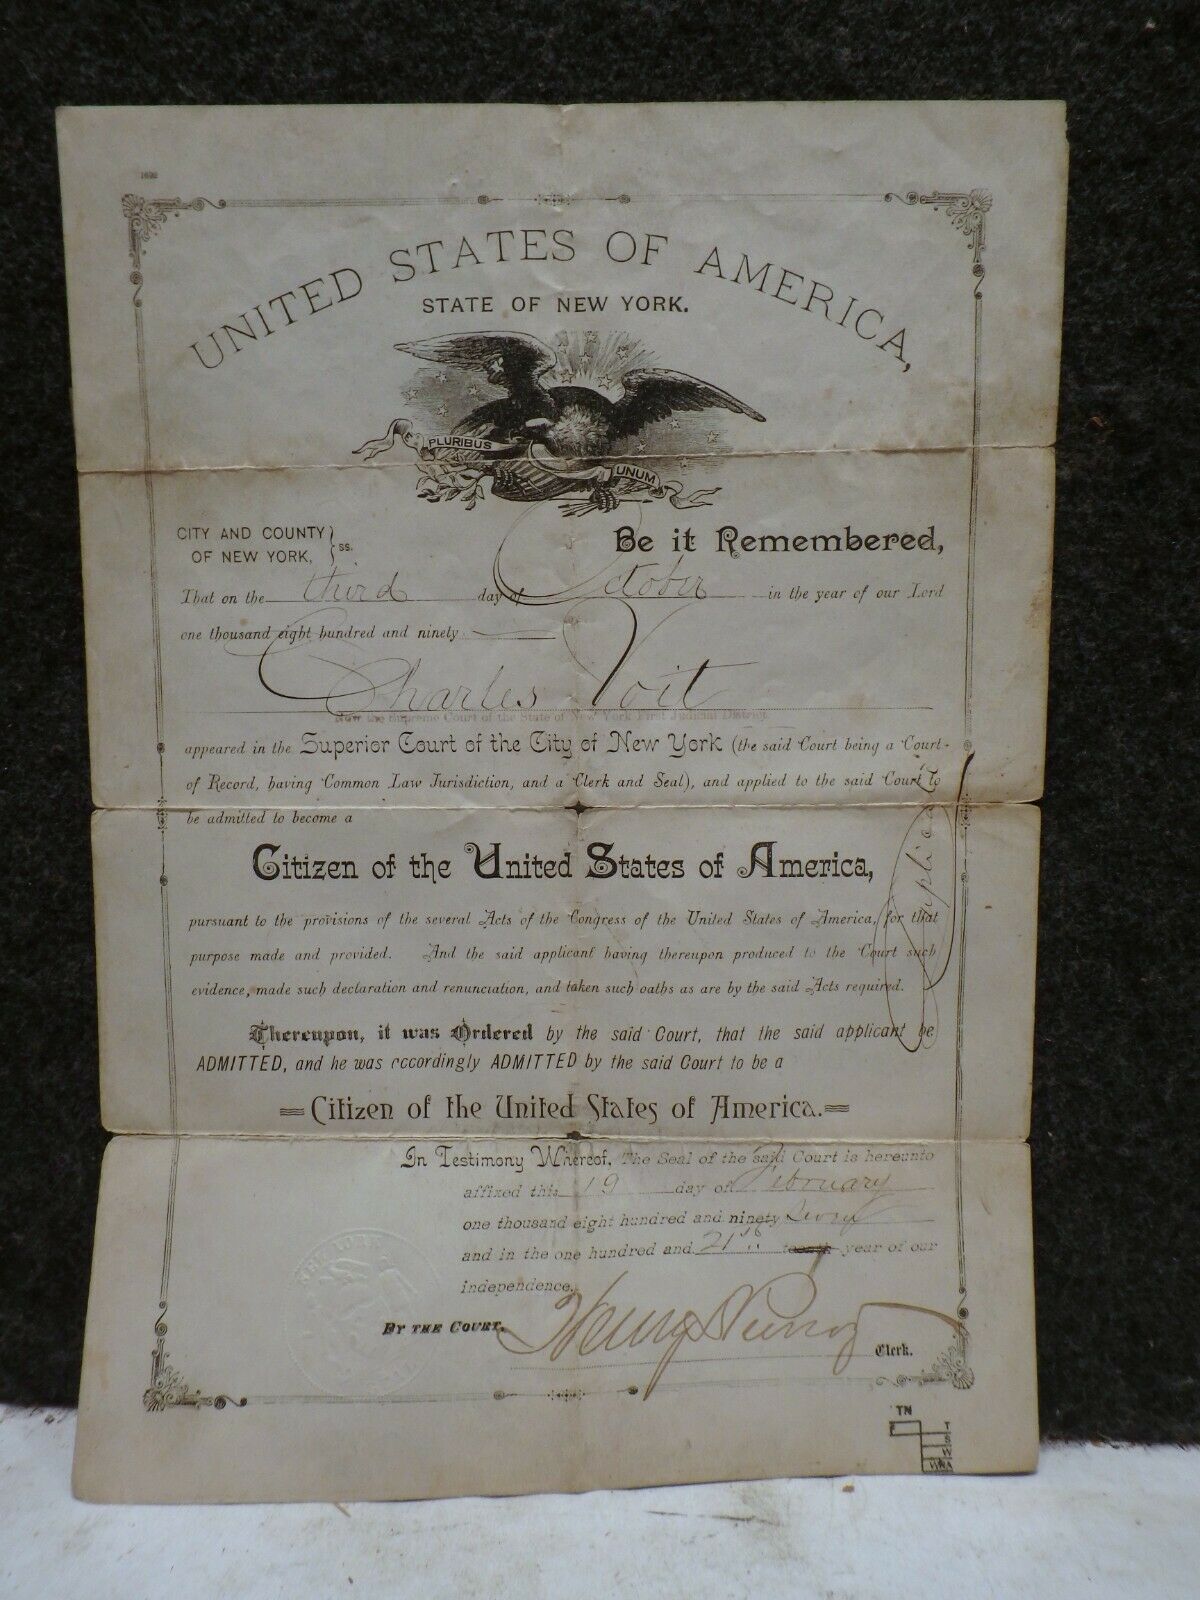 1692
UNITED STATES OF AMERICA,
STATE OF NEW YORK.
E PLURIBUS UNUM
CITY AND COUNTY
OF NEW YORK, } ss.
Be it Remembered,
That on the third day of October in the year of our Lord
one thousand eight hundred and ninety
Charles Voit
Now the Supreme Court of the State of New York First Judicial District.
appeared in the Superior Court of the City of New York (the said Court being a Court
of Record, having Common Law Jurisdiction, and a Clerk and Seal), and applied to the said Court to
be admitted to become a
Citizen of the United States of America,
pursuant to the provisions of the several Acts of the Congress of the United States of America, for that
purpose made and provided. And the said applicant having thereupon produced to the Court such
evidence, made such declaration and renunciation, and taken such oaths as are by the said Acts required.
Duplicate
Thereupon, it was Ordered by the said Court, that the said applicant be
ADMITTED, and he was accordingly ADMITTED by the said Court to be a
Citizen of the United States of America.
In Testimony Whereof, The Seal of the said Court is hereunto
affixed this 19 day of February
one thousand eight hundred and ninety
and in the one hundred and 21st teenth year of our
independence.
BY THE COURT,
Henry Clerk.
TN
T
S
W
WNA